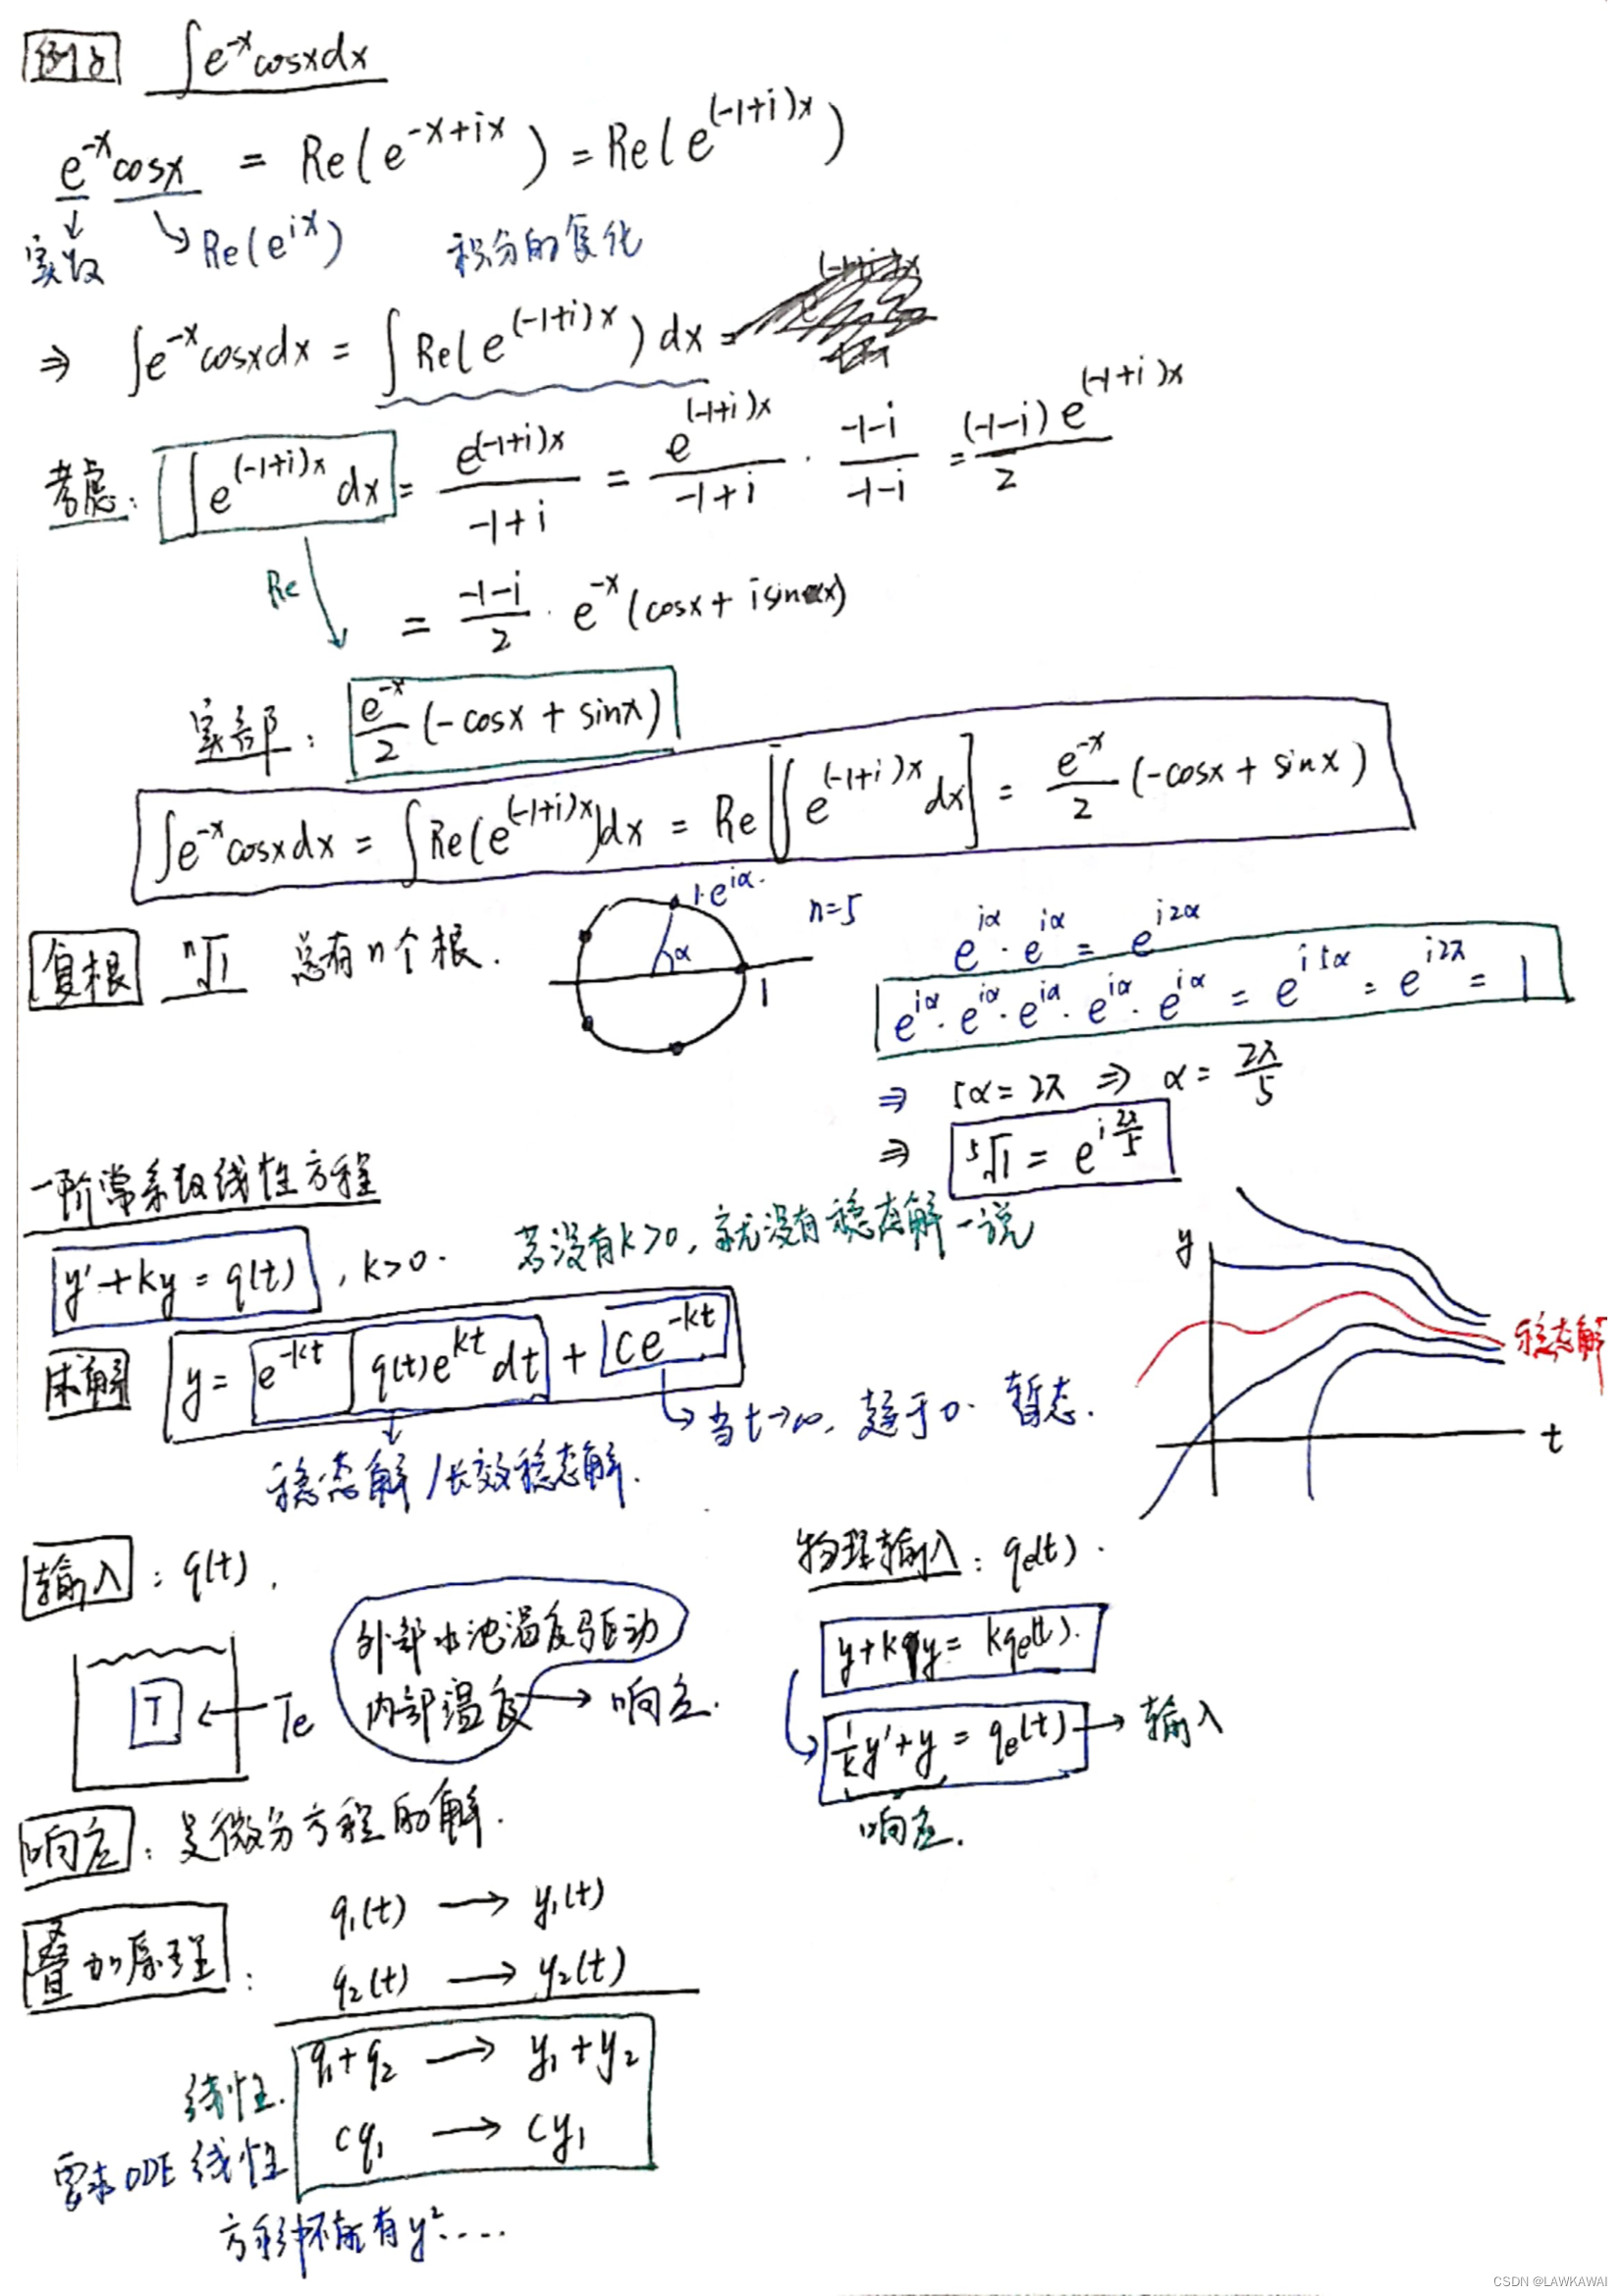 例子 ∫e^{-x}cosxdx
e^{-x}cosx = Re(e^{-x+ix}) = Re(e^{(-1+i)x})
实数 Re(e^{ix}) 积分的复化
⇒ ∫e^{-x}cosxdx = ∫Re(e^{(-1+i)x})dx =
考虑: ∫e^{(-1+i)x}dx = e^{(-1+i)x}/(-1+i) = e^{(-1+i)x}/(-1+i) · (-1-i)/(-1-i) = (-1-i)e^{(-1+i)x}/2
Re
= (-1-i)/2 · e^{-x}(cosx + isinx)
实部: e^{-x}/2 (-cosx + sinx)
∫e^{-x}cosxdx = ∫Re(e^{(-1+i)x})dx = Re[∫e^{(-1+i)x}dx] = e^{-x}/2 (-cosx + sinx)
复根 ⁿ√1 总有n个根.
1·e^{iα}. α 1 n=5
e^{iα}·e^{iα} = e^{i2α}
e^{iα}·e^{iα}·e^{iα}·e^{iα}·e^{iα} = e^{i5α} = e^{i2π} = 1
⇒ 5α = 2π ⇒ α = 2π/5
⇒ ⁵√1 = e^{i2π/5}
一阶常系数线性方程
y'+ky = q(t), k>0. 若没有k>0, 就没有稳态解一说
求解 y = e^{-kt}∫q(t)e^{kt}dt + Ce^{-kt}
当t→∞, 趋于0. 暂态.
稳态解/长效稳态解.
y 稳态解 t
输入: q(t).
T Te
外部水池温度驱动
内部温度 → 响应.
物理输入: qe(t).
y+ky = kqe(t).
1/k y'+y = qe(t) → 输入
响应.
响应: 是微分方程的解.
叠加原理: q₁(t) → y₁(t)
q₂(t) → y₂(t)
线性. q₁+q₂ → y₁+y₂
cq₁ → cy₁
要求ODE线性
方程中不能有y²....
CSDN @LAWKAWAI